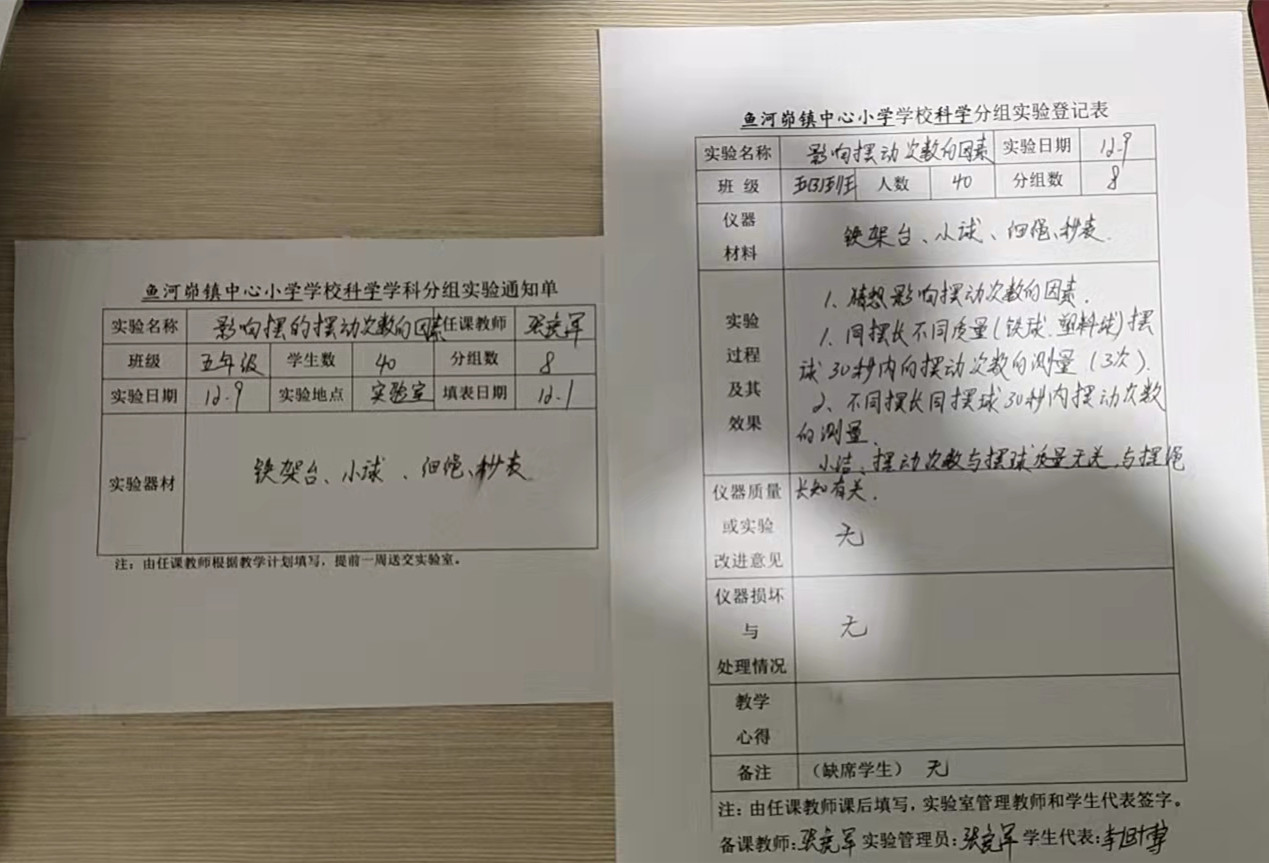 鱼河峁镇中心小学学校科学学科分组实验通知单
实验名称 影响摆的摆动次数的因素 任课教师
班级 五年级 学生数 40 分组数 8
实验日期 12.9 实验地点 实验室 填表日期 12.1
实验器材 铁架台、小球、细绳、秒表
注：由任课教师根据教学计划填写，提前一周送交实验室。
鱼河峁镇中心小学学校科学分组实验登记表
实验名称 影响摆动次数的因素 实验日期 12.9
班级 人数 40 分组数 8
仪器
材料
铁架台、小球、细绳、秒表.
实验
过程
及其
效果
1、猜想影响摆动次数的因素.
1、同摆长不同质量(铁球.塑料球)摆
球30秒内的摆动次数的测量(3次).
2、不同摆长同摆球30秒内摆动次数
的测量.
小结、摆动次数与摆球质量无关,与摆绳
长短有关.
仪器质量
或实验
改进意见
无
仪器损坏
与
处理情况
无
教学
心得
备注 （缺席学生） 无
注：由任课教师课后填写，实验室管理教师和学生代表签字。
备课教师: 实验管理员: 学生代表: